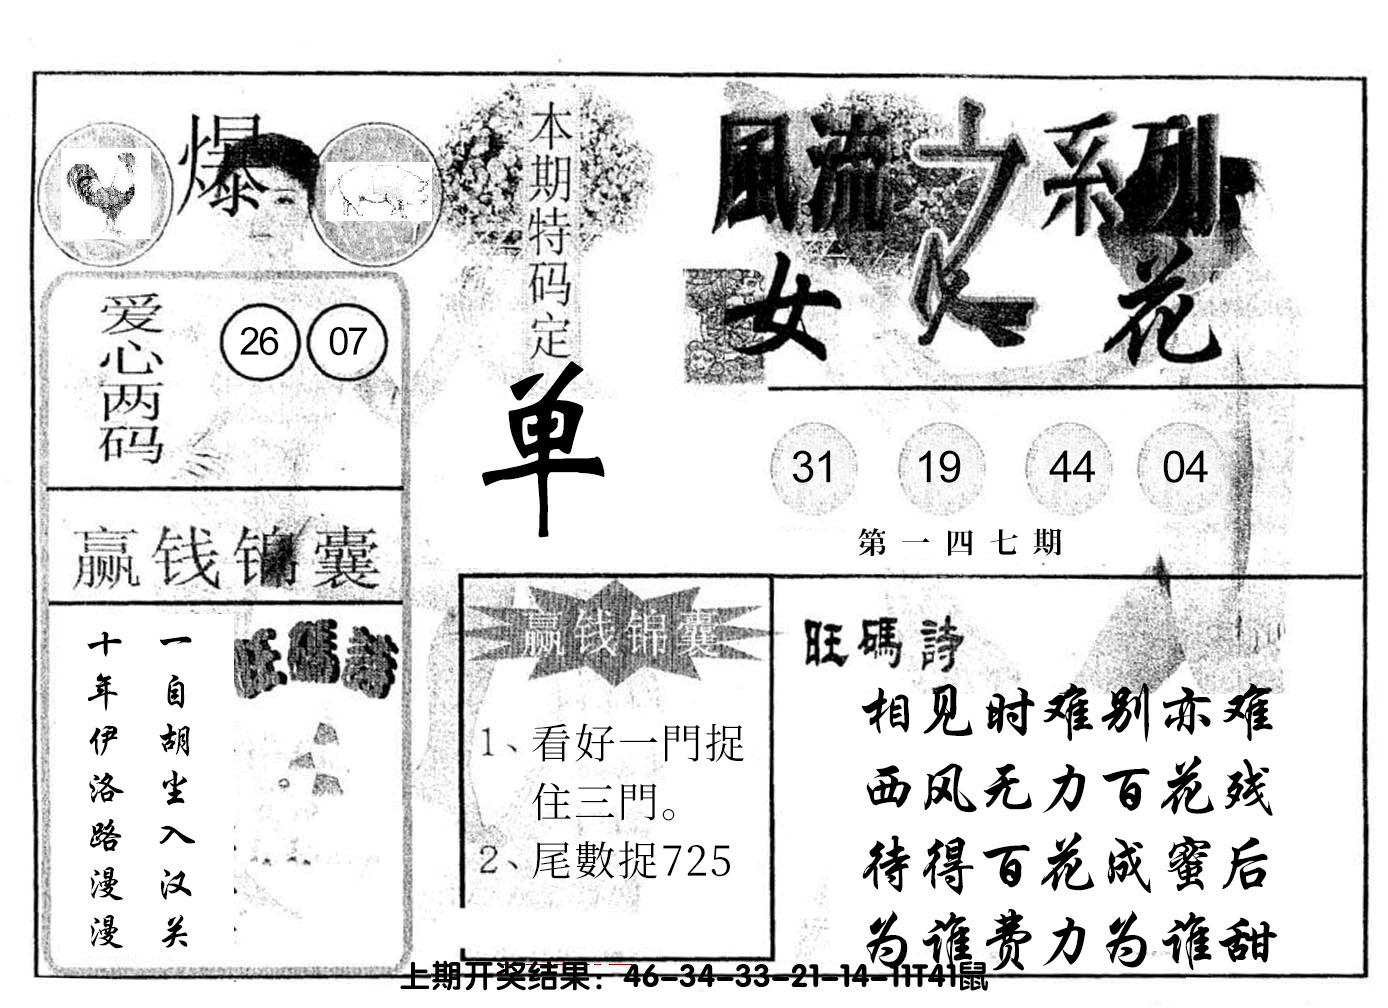 爆
本期特码定
单
風流之系列
女人花
爱心两码
26 07
31 19 44 04
第一四七期
赢钱锦囊
一自胡尘入汉关
十年伊洛路漫漫
旺碼詩
赢钱锦囊
1、看好一門捉
住三門。
2、尾數捉725
旺碼詩
相见时难别亦难
西风无力百花残
待得百花成蜜后
为谁费力为谁甜
上期开奖结果：46-34-33-21-14-11T41鼠